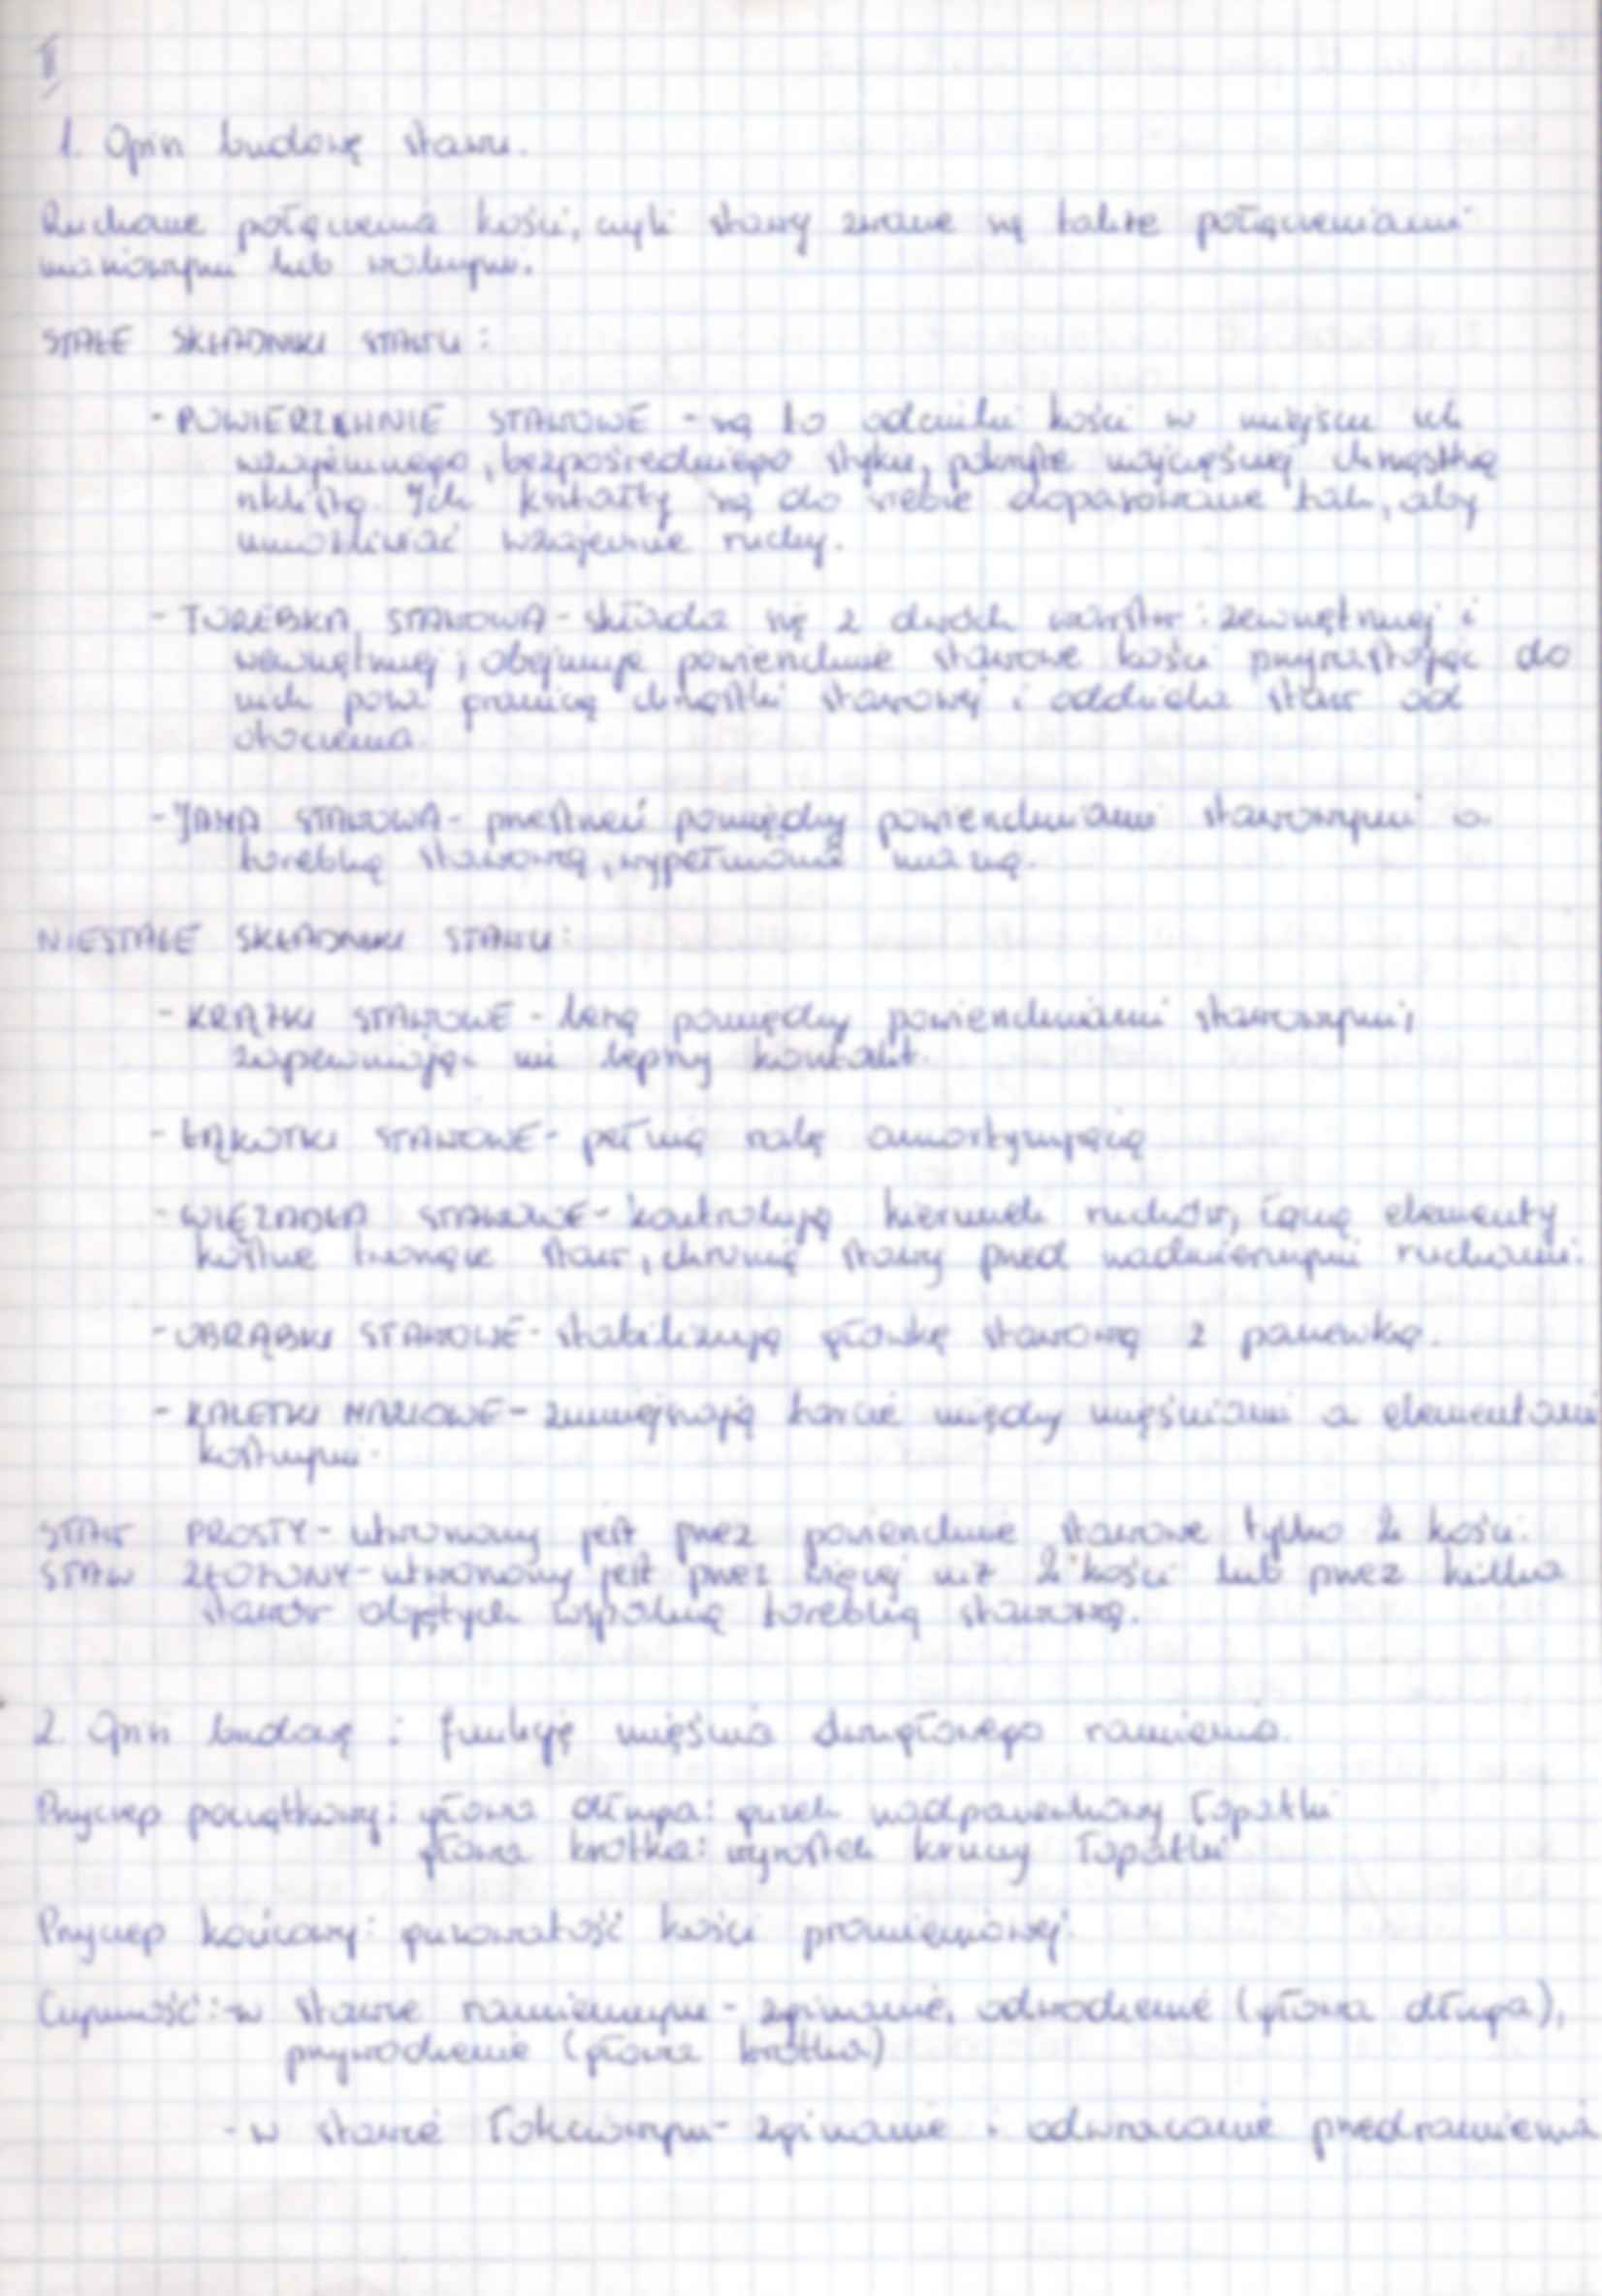 II
1. Opisz budowę stawu.
Ruchome połączenia kości, czyli stawy zwane są także połączeniami
maziowymi lub wolnymi.
STAŁE SKŁADNIKI STAWU:
- POWIERZCHNIE STAWOWE - są to odcinki kości w miejscu ich
wzajemnego, bezpośredniego styku, pokryte najczęściej chrząstką
szklistą. Ich kształty są do siebie dopasowane tak, aby
umożliwiać wzajemne ruchy.
- TOREBKA STAWOWA - składa się z dwóch warstw: zewnętrznej i
wewnętrznej; obejmuje powierzchnie stawowe kości przyrastając do
nich poza granicą chrząstki stawowej i oddziela staw od
otoczenia.
- JAMA STAWOWA - przestrzeń pomiędzy powierzchniami stawowymi a
torebką stawową, wypełniona mazią.
NIESTAŁE SKŁADNIKI STAWU:
- KRĄŻKI STAWOWE - leżą pomiędzy powierzchniami stawowymi,
zapewniając im lepszy kontakt.
- ŁĄKOTKI STAWOWE - pełnią rolę amortyzującą
- WIĘZADŁA STAWOWE - kontrolują kierunek ruchów, łączą elementy
kostne tworzące staw, chronią stawy przed nadmiernymi ruchami.
- OBRĄBKI STAWOWE - stabilizują główkę stawową z panewką.
- KALETKI MAZIOWE - zmniejszają tarcie między mięśniami a elementami
kostnymi.
STAW PROSTY - utworzony jest przez powierzchnie stawowe tylko 2 kości.
STAW ZŁOŻONY - utworzony jest przez więcej niż 2 kości lub przez kilka
stawów objętych wspólną torebką stawową.
2. Opisz budowę i funkcję mięśnia dwugłowego ramienia.
Przyczep początkowy: głowa długa: guzek nadpanewkowy łopatki
głowa krótka: wyrostek kruczy łopatki
Przyczep końcowy: guzowatość kości promieniowej.
Czynność: - w stawie ramiennym - zginanie, odwodzenie (głowa długa),
przywodzenie (głowa krótka)
- w stawie łokciowym - zginanie i odwracanie przedramienia